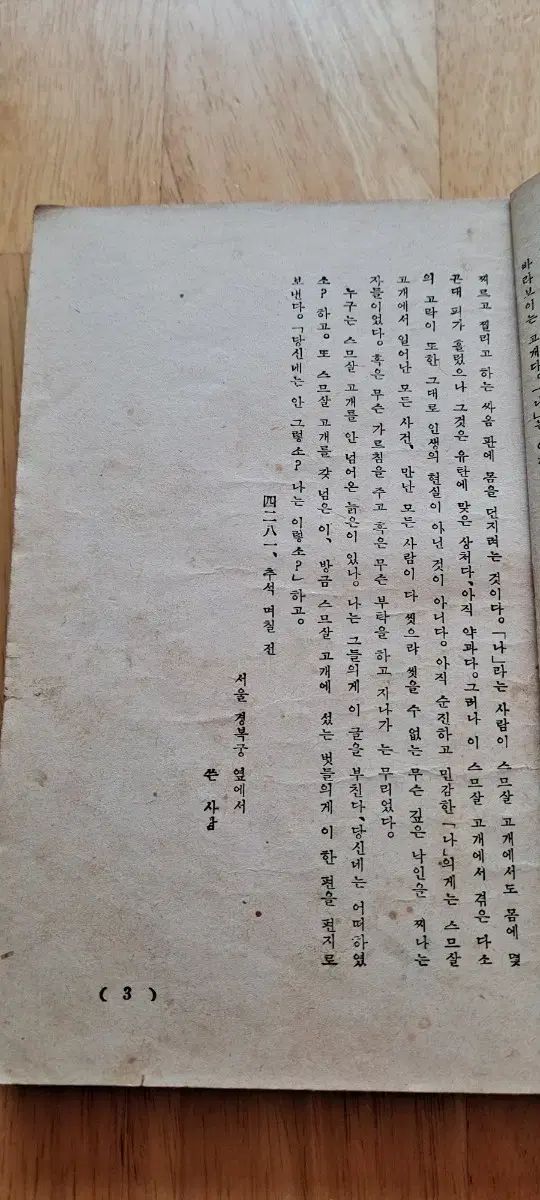 바라보이는 고개다。
찌르고 찔리고 하는 싸움 판에 몸을 던지려는 것이다。「나」라는 사람이 스므살 고개에서도 몸에 몇
군대 피가 흘렀으나 그것은 유탄에 맞은 상처다、아직 약과다。그러나 이 스므살 고개에서 겪은 다소
의 고락이 또한 그대로 인생의 현실이 아닌 것이 아니다。아직 순진하고 민감한「나」의게는 스므살
고개에서 일어난 모든 사건、만난 모든 사람이 다 씻으랴 씻을 수 없는 무슨 깊은 낙인을 찌나는
자들이었다。혹은 무슨 가르침을 주고 혹은 무슨 부탁을 하고 지나가는 무리었다。
누구는 스므살 고개를 안 넘어온 늙은이 있나。나는 그들의게 이 글을 부친다、당신네는 어떠하였
소? 하고。또 스므살 고개를 갖 넘은 이、방금 스므살 고개에 섰는 벗들의게 이 한 편을 편지로
보낸다。「당신네는 안 그렇소? 나는 이렇소?」하고。
四二八一、추석 며칠 전
서울 경복궁 옆에서
쓴 사람
( 3 )